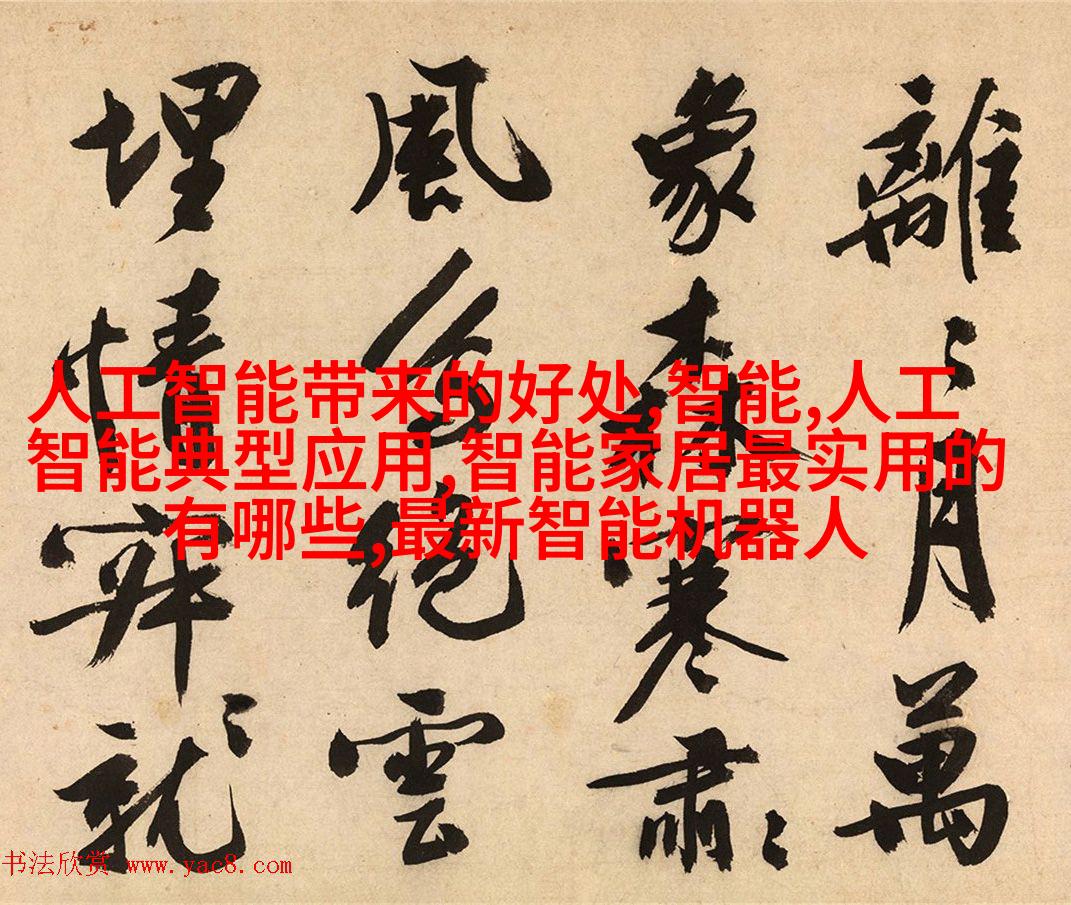 離〻月萬
象森寒肅〻
風絕雲
埋情就〻
人工智能带来的好处,智能,人工
智能典型应用,智能家居最实用的
有哪些,最新智能机器人
书法欣赏 www.yac8.com